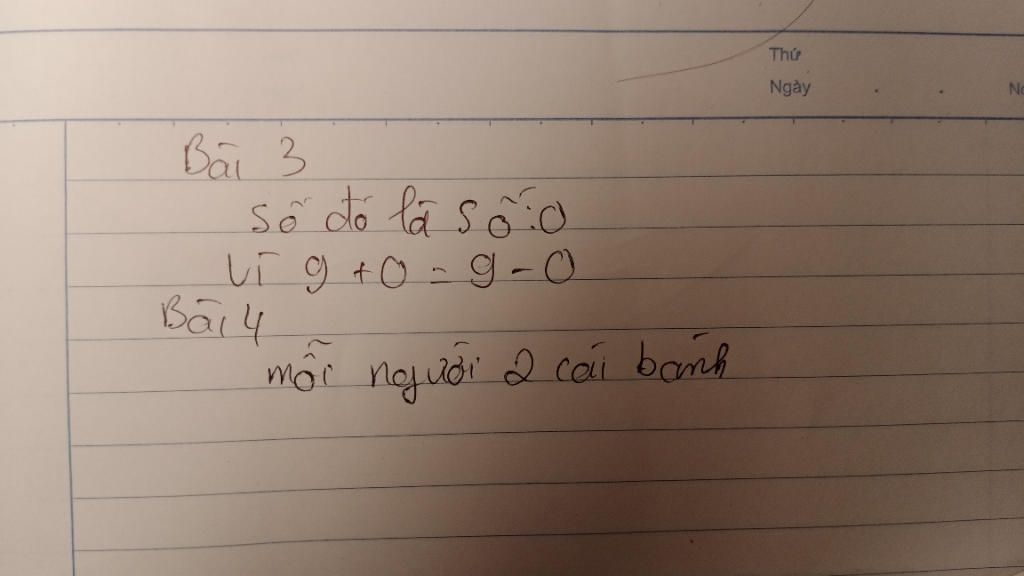 Thứ
Ngày . .
Bài 3
Số đó là số: 0
Vì 9 + 0 = 9 - 0
Bài 4
mỗi người 2 cái bánh